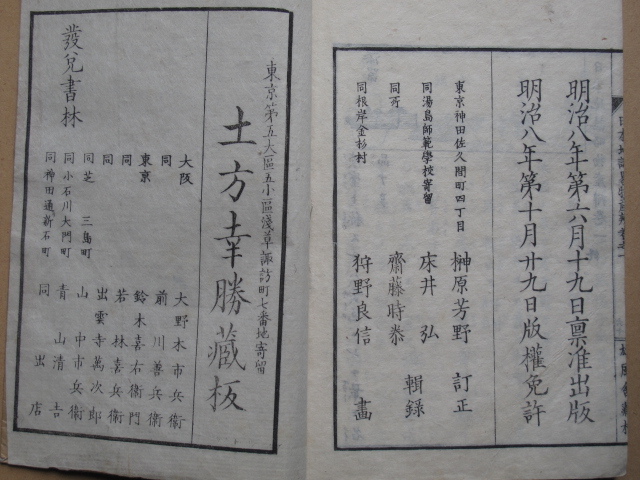 明治八年第六月十九日稟准出版
明治八年第十月廿九日版權免許
東京神田佐久間町四丁目 榊原芳野 訂正
同湯島師範學校寄留 床井弘 輯録
同所 齋藤時恭
同根岸金杉村 狩野良信 畫
東京第五大區五小區淺草諏訪町七番地寄留
土方幸勝藏板
發兌書林
大阪 大野木市兵衛
同 前川善兵衛
東京 鈴木喜右衛門
同 若林喜兵衛
同 出雲寺萬次郎
同芝三島町 山中市兵衛
同小石川大門町 青山清吉
同神田通新石町 同出店